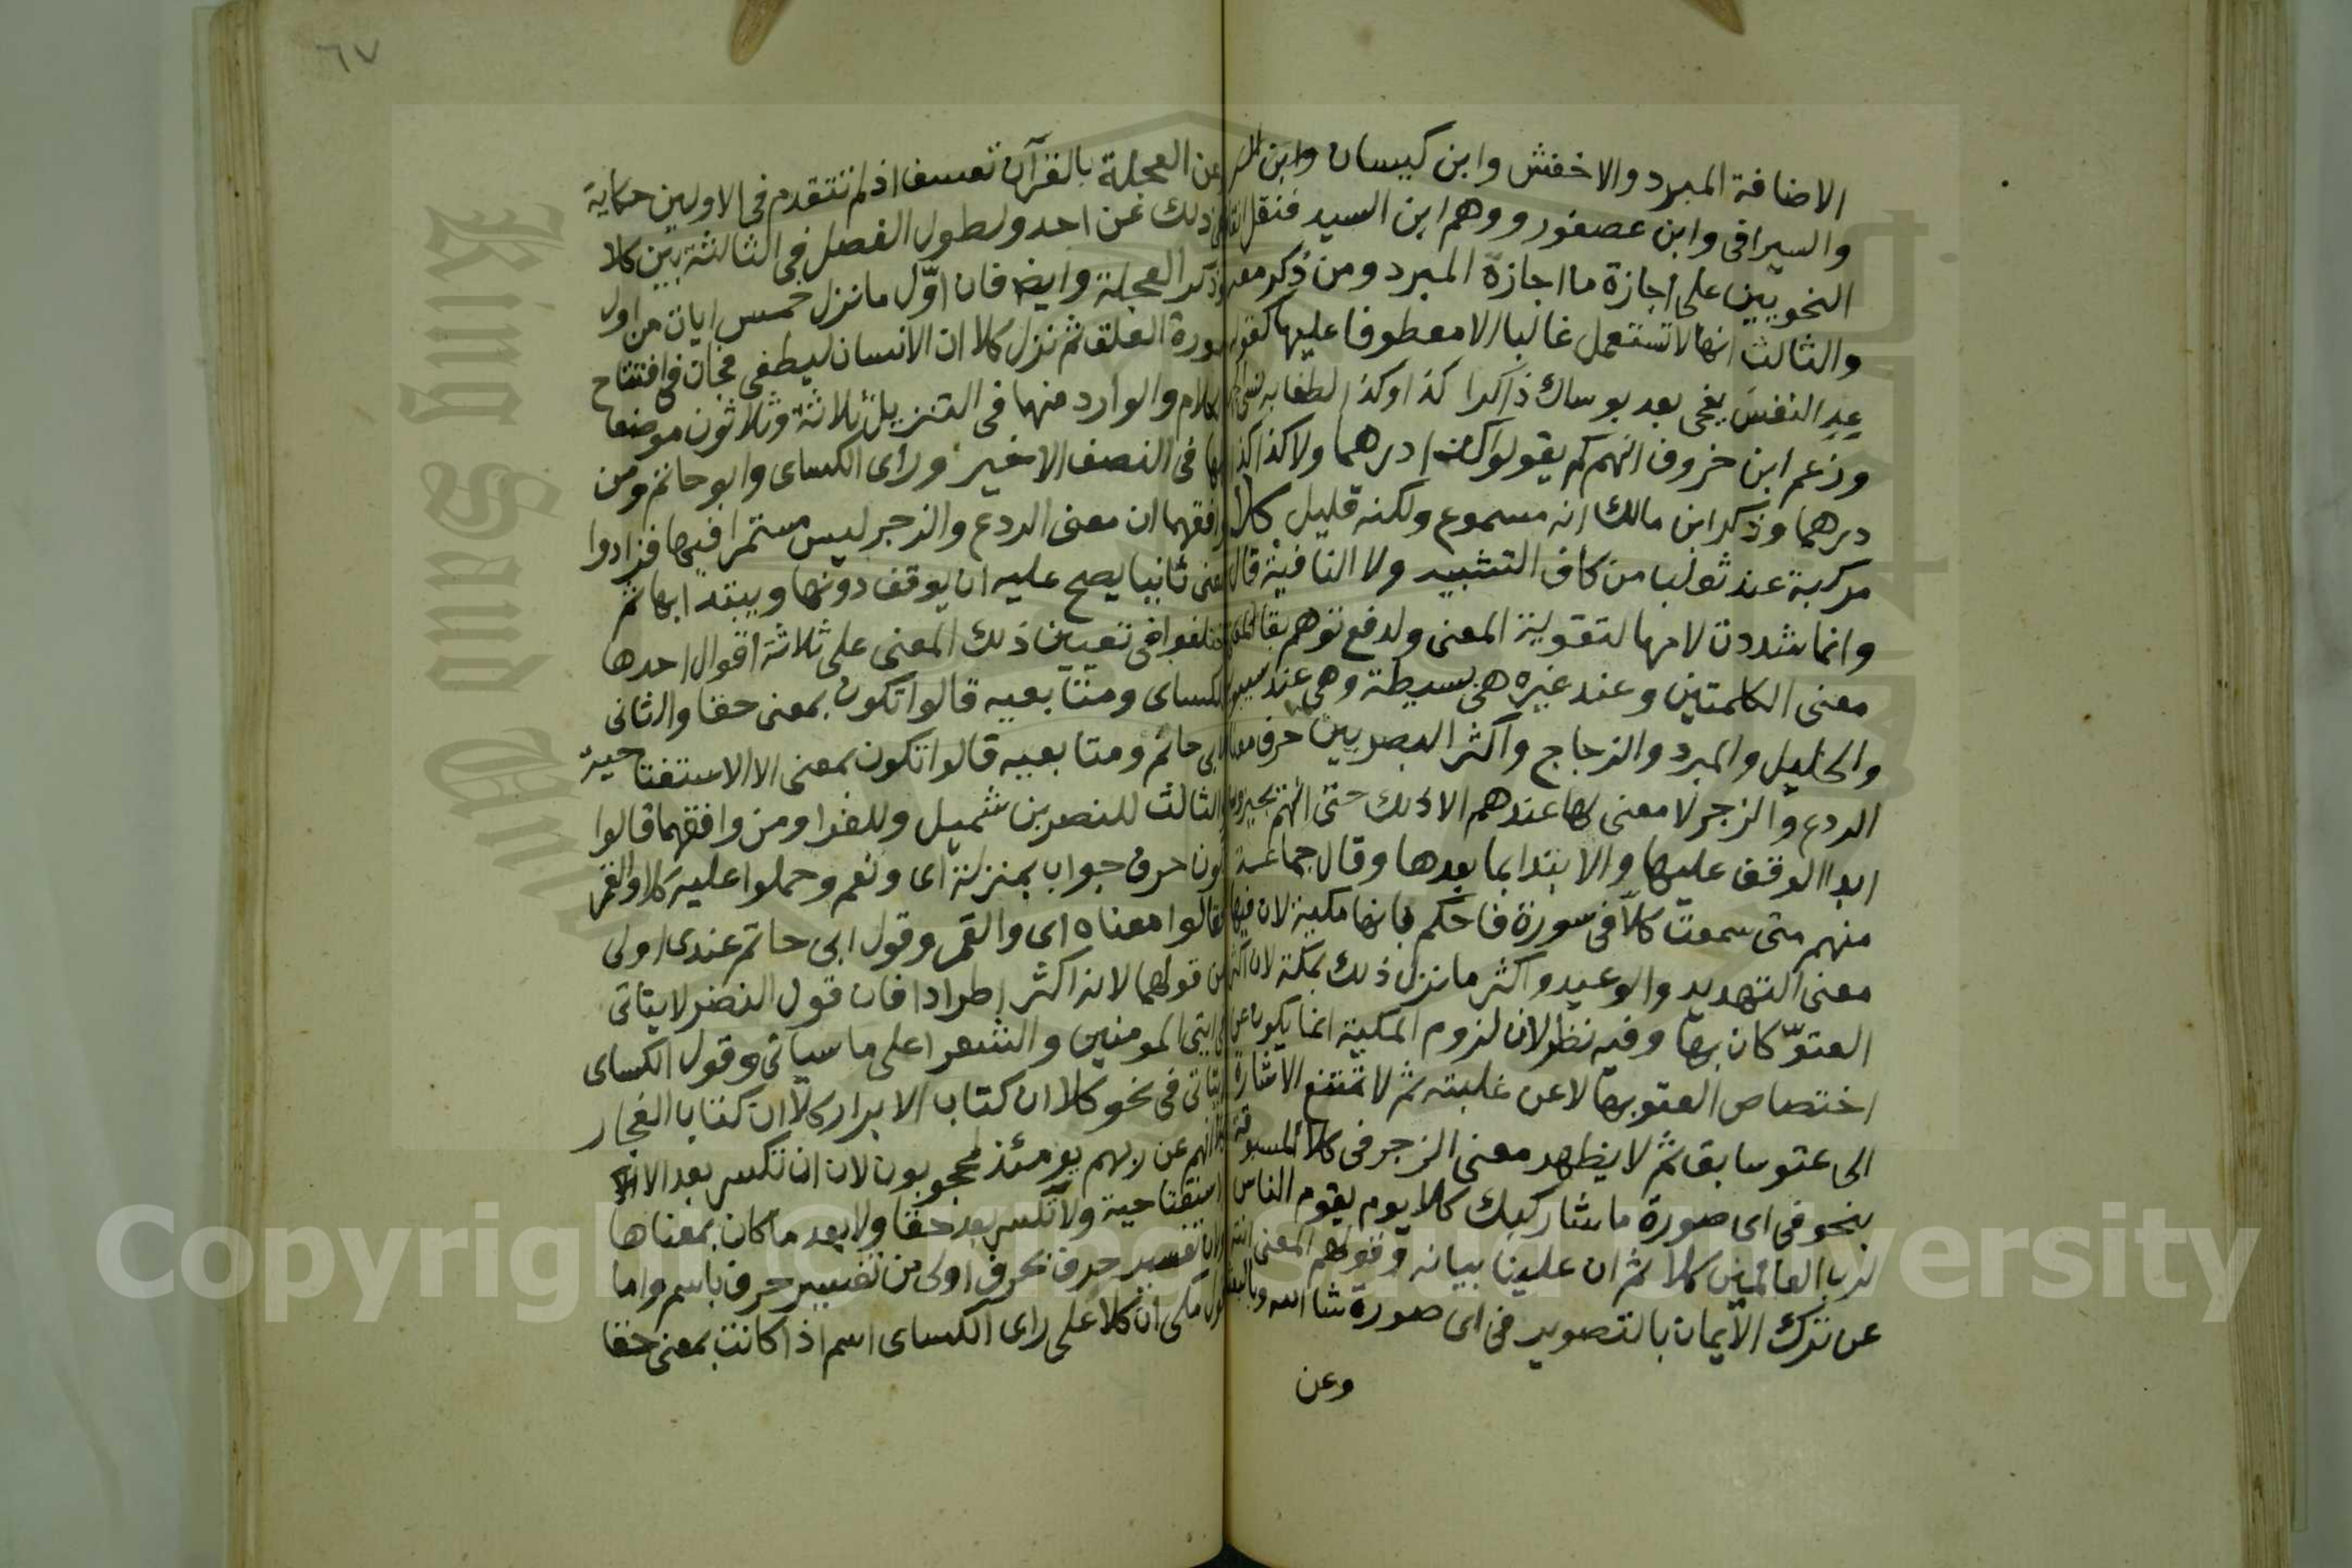 الاضافة المبرد والاخفش وابن كيسان وابن
والسيرافى وابن عصفور ووهم ابن السيد فنقل
النحويين على اجازة ما اجازه المبرد ومن ذكر معه
والثالث انها لا تستعمل غالبا الا معطوفا عليها كقوله
عد النفس نعمى بعد بوساك ذاكرا كذا وكذا لطفا به نسى
وزعم ابن خروف انهم لم يقولوا كذا درهما ولا كذا كذا
درهما وذكر ابن مالك انه مسموع ولكنه قليل كلا
مركبة عند ثعلب من كاف التشبيه ولا النافية قال
وانما شددت لامها لتقوية المعنى ولدفع توهم بقا
معنى الكلمتين وعند غيره هى بسيطة وهى عند سيبويه
والخليل والمبرد والزجاج واكثر البصريين حرف معناه
الردع والزجر لا معنى لها عندهم الا ذلك حتى انهم يجيزون
ابدا الوقف عليها والابتدا بما بعدها وقال جماعة
منهم متى سمعت كلا فى سورة فاحكم بانها مكية لان فيها
معنى التهديد والوعيد واكثر ما نزل ذلك بمكة لان اكثر
العتوّ كان بها وفيه نظر لان لزوم المكية انما يكون عن
اختصاص العتو بها لا عن غلبته ثم لا تمتنع الاشارة
الى عتو سابق ثم لا يظهر معنى الزجر فى كلا المسبوقة
بنحو فى اى صورة ما شا ركبك كلا يوم يقوم الناس
لرب العالمين كلا ثم ان علينا بيانه وقولهم المعنى انته
عن ترك الايمان بالتصوير فى اى صورة شا الله وبالبعث
وعن
٦٧
عن العجلة بالقرآن تعسف اذ لم تتقدم فى الاولين حكاية
ذلك عن احد ولطول الفصل فى الثالثة بين كلا
وذكر العجلة وايضا فان اوّل ما نزل خمس ايات من اول
سورة العلق ثم نزل كلا ان الانسان ليطغى فجات فى افتتاح
الكلام والوارد منها فى التنزيل ثلاثة وثلاثون موضعا
كلها فى النصف الاخير وراى الكساى وابو حاتم ومن
وافقهما ان معنى الردع والزجر ليس مستمرا فيها فزادوا
معنى ثانيا يصح عليه ان يوقف دونها ويبتدا بها ثم
اختلفوا فى تعيين ذلك المعنى على ثلاثة اقوال احدها
للكساى ومتابعيه قالوا تكون بمعنى حقا والثانى
لابى حاتم ومتابعيه قالوا تكون بمعنى الا الاستفتاحية
والثالث للنضر بن شميل وللفرا ومن وافقهما قالوا
تكون حرف جواب بمنزلة اى ونعم وحملوا عليه كلا والقمر
فقالوا معناه اى والقمر وقول ابى حاتم عندى اولى
من قولهما لانه اكثر اطرادا فان قول النضر لا يتاتى
فى ايتى المومنين والشعرا على ما سياتى وقول الكساى
لا يتاتى فى نحو كلا ان كتاب الابرار كلا ان كتاب الفجار
كلا انهم عن ربهم يومئذ لمحجوبون لان ان تكسر بعد الا
الاستفتاحية ولا تكسر بعد حقا ولا بعد ما كان بمعناها
ولان تفسير حرف بحرف اولى من تفسير حرف باسم واما
قول مكى ان كلا على راى الكساى اسم اذا كانت بمعنى حقا
King Saud University
Copyright © King Saud University